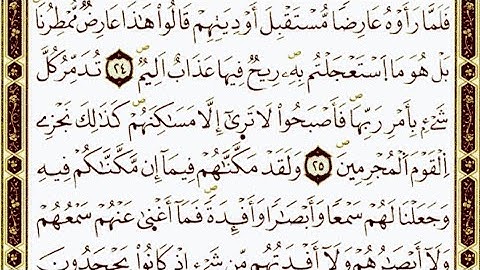 فَلَمَّا رَأَوْهُ عَارِضًا مُّسْتَقْبِلَ أَوْدِيَتِهِمْ قَالُوا۟ هَٰذَا عَارِضٌ مُّمْطِرُنَا
بَلْ هُوَ مَا ٱسْتَعْجَلْتُم بِهِۦ رِيحٌ فِيهَا عَذَابٌ أَلِيمٌ ٢٤ تُدَمِّرُ كُلَّ
شَىْءٍۭ بِأَمْرِ رَبِّهَا فَأَصْبَحُوا۟ لَا تَرَىٰٓ إِلَّا مَسَاكِنَهُمْ كَذَٰلِكَ نَجْزِى
ٱلْقَوْمَ ٱلْمُجْرِمِينَ ٢٥ وَلَقَدْ مَكَّنَّاهُمْ فِيمَآ إِن مَّكَّنَّاكُمْ فِيهِ
وَجَعَلْنَا لَهُمْ سَمْعًا وَأَبْصَارًا وَأَفْـِٔدَةً فَمَآ أَغْنَىٰ عَنْهُمْ سَمْعُهُمْ
وَلَآ أَبْصَارُهُمْ وَلَآ أَفْـِٔدَتُهُم مِّن شَىْءٍ إِذْ كَانُوا۟ يَجْحَدُونَ